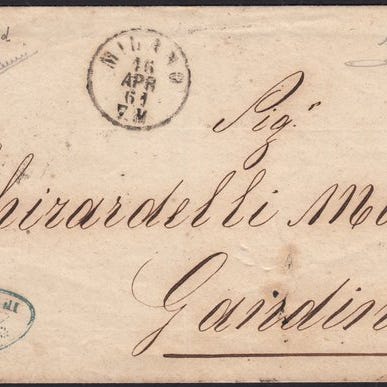 MILANO
16
APR
61
7.M
Sig.r
hirardelli Ma
Gandin